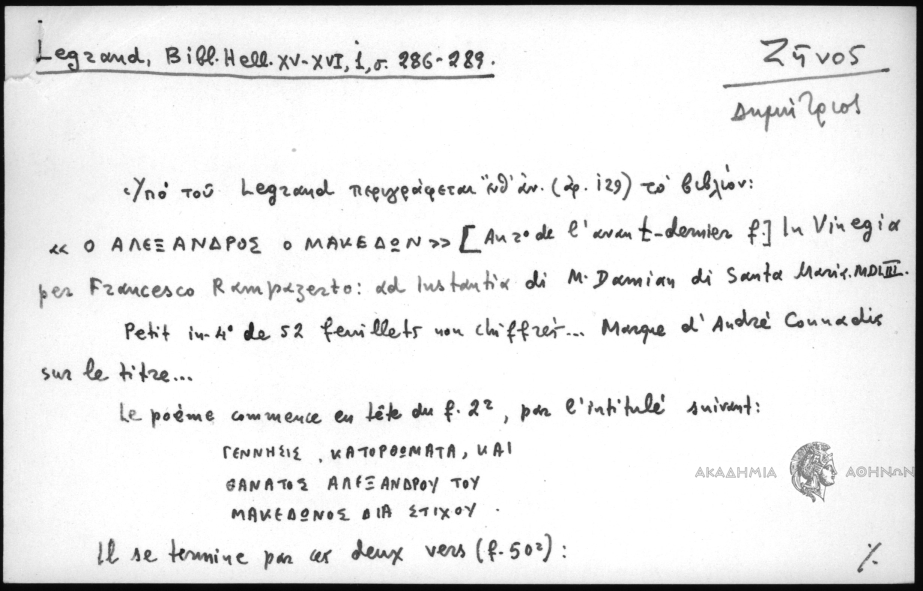 Legrand, Bibl. Hell. XV-XVI, 1, σ. 286-289.
Ζῆνος
Δημήτριος
Ὑπό τοῦ Legrand περιγράφεται ἐνθ' ἀν. (ἀρ. 129) τό βιβλίον:
« Ο ΑΛΕΞΑΝΔΡΟΣ Ο ΜΑΚΕΔΩΝ» [Au ro de l'avant-dernier f.] In Vinegia
per Francesco Rampazerto: ad Instantia di M. Damian di Santa Maria. MDLIII.
Petit in-4° de 52 feuillets non chiffrés... Marque d'André Counadis
sur le titre...
Le poème commence en tête du f. 2r, par l'intitulé suivant:
ΓΕΝΝΗΣΙΣ, ΚΑΤΟΡΘΩΜΑΤΑ, ΚΑΙ
ΘΑΝΑΤΟΣ ΑΛΕΞΑΝΔΡΟΥ ΤΟΥ
ΜΑΚΕΔΩΝΟΣ ΔΙΑ ΣΤΙΧΟΥ.
ΑΚΑΔΗΜΙΑ ΑΘΗΝΩΝ
Il se termine par ces deux vers (f. 50r):
%